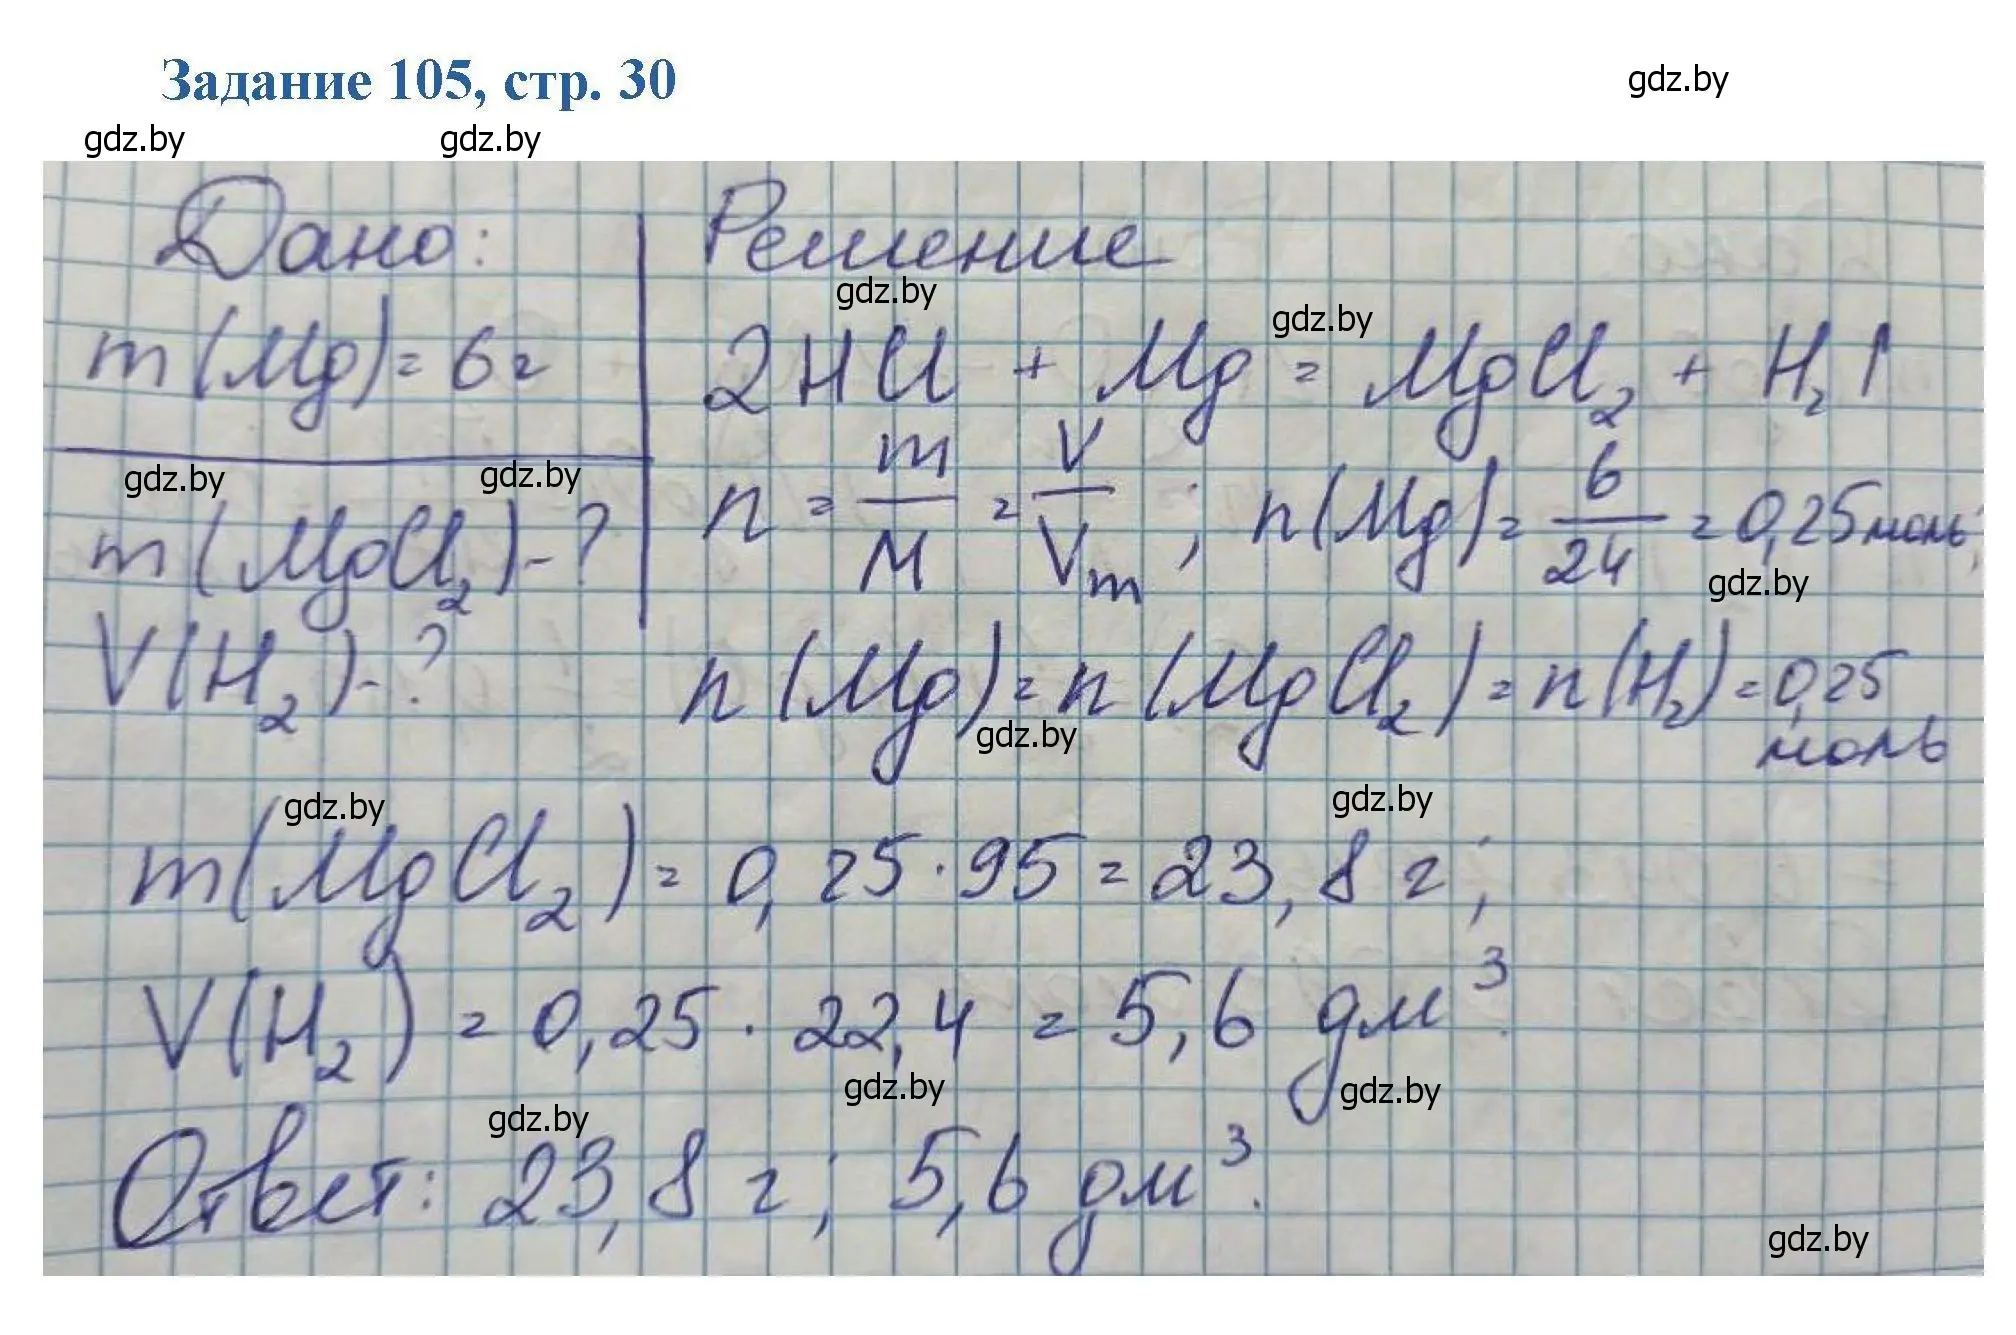 Задание 105, стр. 30
gdz.by
gdz.by gdz.by
Дано:
m(Mg)=6г
m(MgCl₂)-?
V(H₂)-?
Решение
gdz.by gdz.by
2HCl + Mg = MgCl₂ + H₂↑
n = m/M = V/Vm ; n(Mg)= 6/24 = 0,25моль;
gdz.by gdz.by gdz.by
n(Mg)=n(MgCl₂)=n(H₂)=0,25
моль
gdz.by
gdz.by gdz.by
m(MgCl₂)= 0,25·95=23,8 г;
V(H₂) = 0,25 · 22,4 = 5,6 дм³.
gdz.by gdz.by gdz.by
Ответ: 23,8 г; 5,6 дм³.
gdz.by